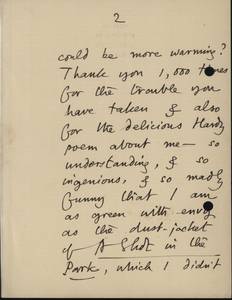 2
could be more warming?
Thank you 1,000 times
for the trouble you
have taken & also
for the delicious Hardy
poem about me — so
understanding, & so
ingenious, & so madly
funny that I am
as green with envy
as the dust-jacket
of A Shot in the
Park, which I didn't